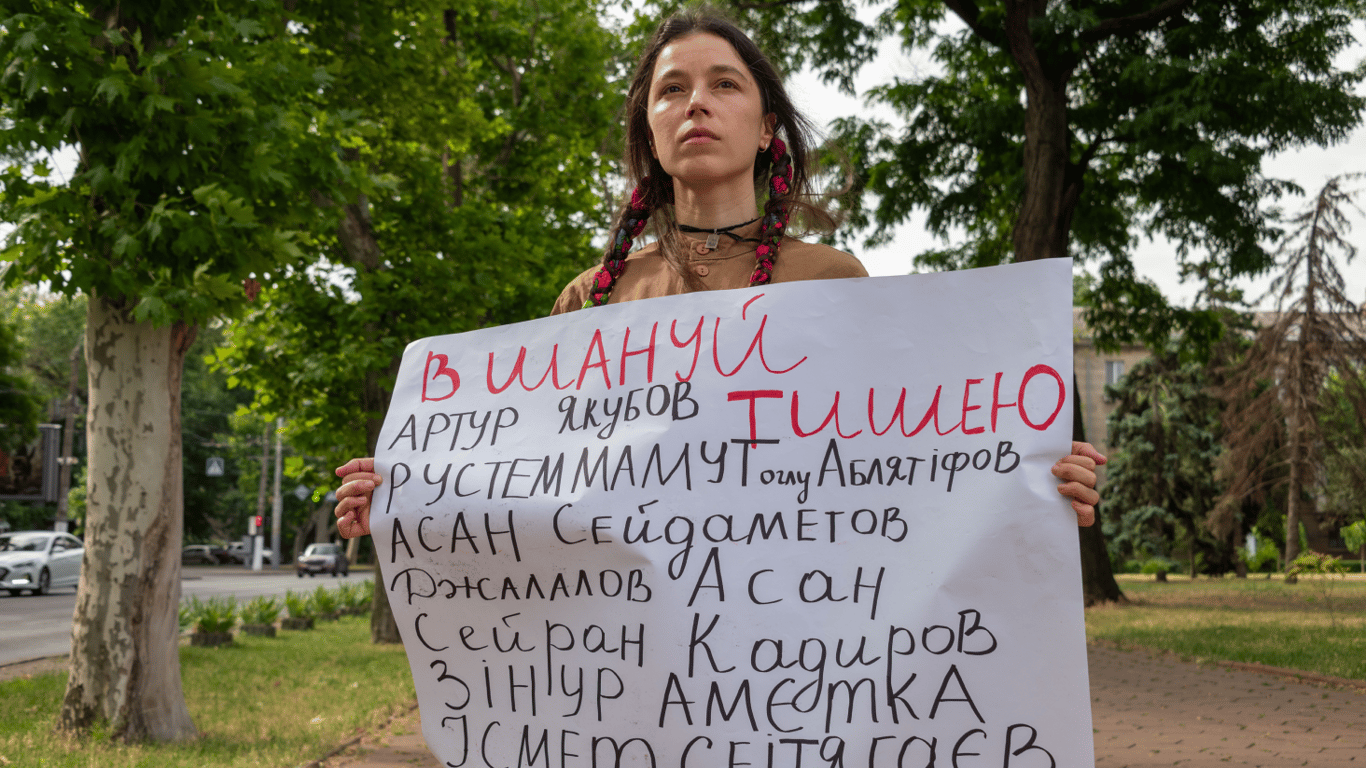 ВШАНУЙ
ТИШЕЮ
АРТУР ЯКУБОВ
РУСТЕМ МАМУТ оглу Аблятіфов
АСАН Сейдаметов
Джалалов Асан
Сейран Кадиров
Зінур Амєтка
Ісмет Сеітягаєв